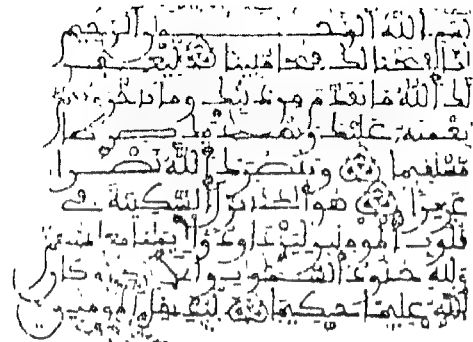 بسم الله الرحمن الرحيم
انا فتحنا لك فتحا مبينا ليغفر
لك الله ما تقدم من ذنبك وما تاخر ويتم
نعمته عليك ويهديك صرطا
مستقيما وينصرك الله نصرا
عزيزا هو الذي انزل السكينة في
قلوب المومنين ليزدادوا ايمنا مع ايمنهم
ولله جنود السموت والارض وكان
الله عليما حكيما ليدخل المومنين